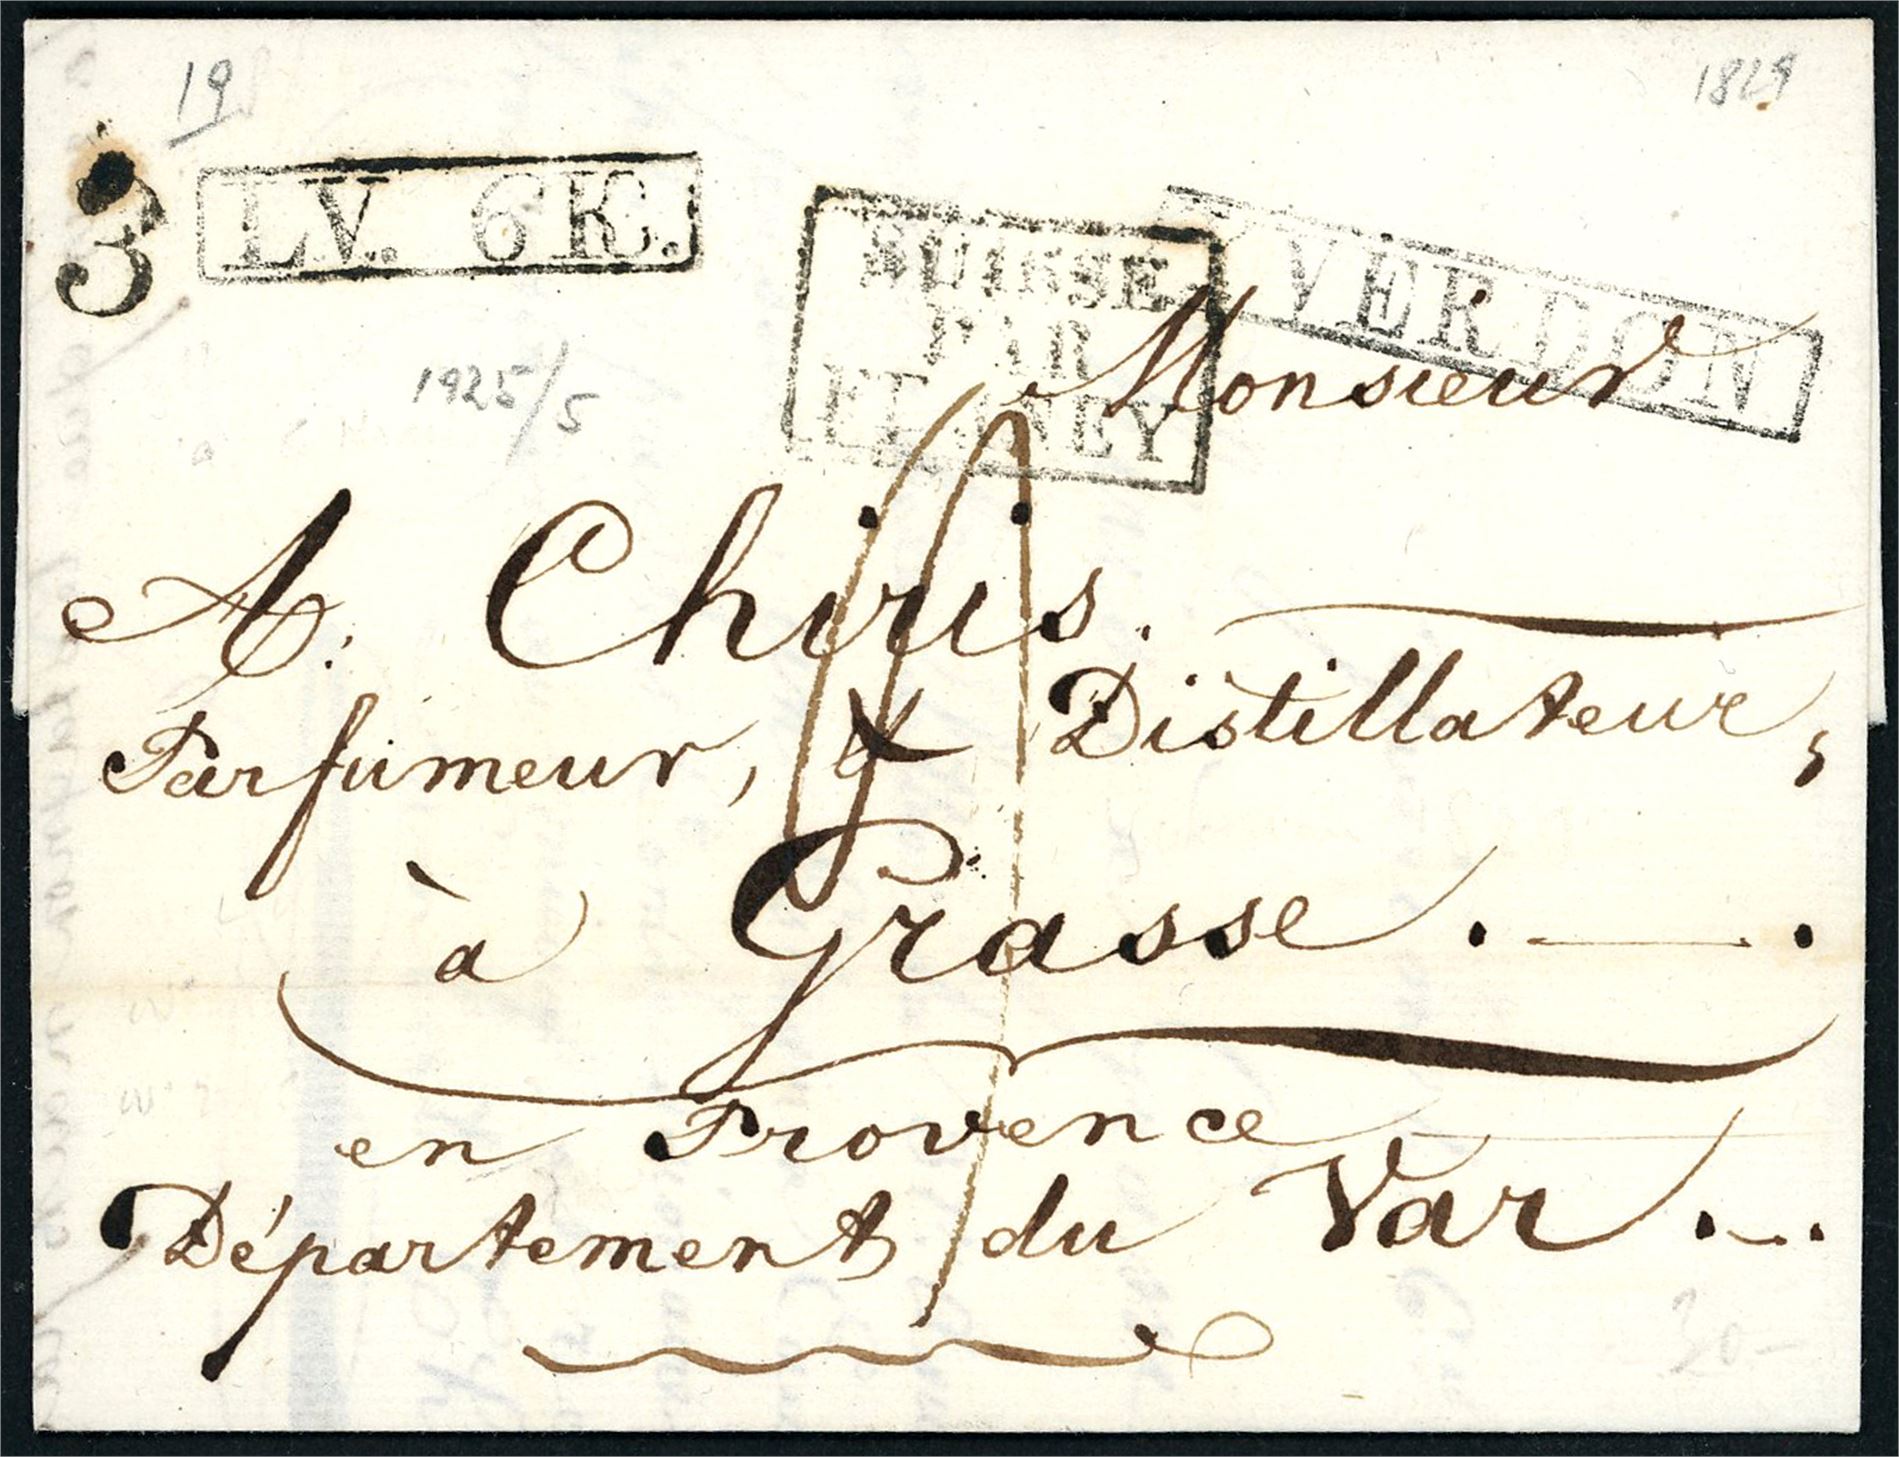 19
1829
3
LV. 6 K.
SUISSE
PAR
FERNEY
YVERDON
1925/5
Monsieur
A. Chiris.
Parfumeur, & Distillateur,
à Grasse.
en Provence
Département du Var.
20-